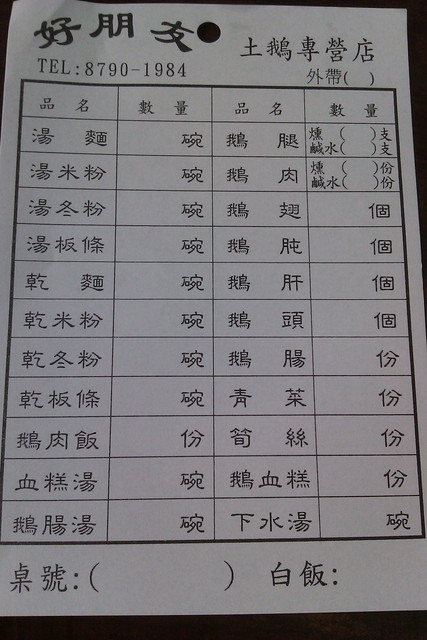 好朋友
土鵝專營店
TEL:8790-1984
外帶( )
品名 數量 品名 數量
湯麵 碗 鵝腿 燻( )支 鹹水( )支
湯米粉 碗 鵝肉 燻( )份 鹹水( )份
湯冬粉 碗 鵝翅 個
湯板條 碗 鵝肫 個
乾麵 碗 鵝肝 個
乾米粉 碗 鵝頭 個
乾冬粉 碗 鵝腸 份
乾板條 碗 青菜 份
鵝肉飯 份 筍絲 份
血糕湯 碗 鵝血糕 份
鵝腸湯 碗 下水湯 碗
桌號:( ) 白飯: